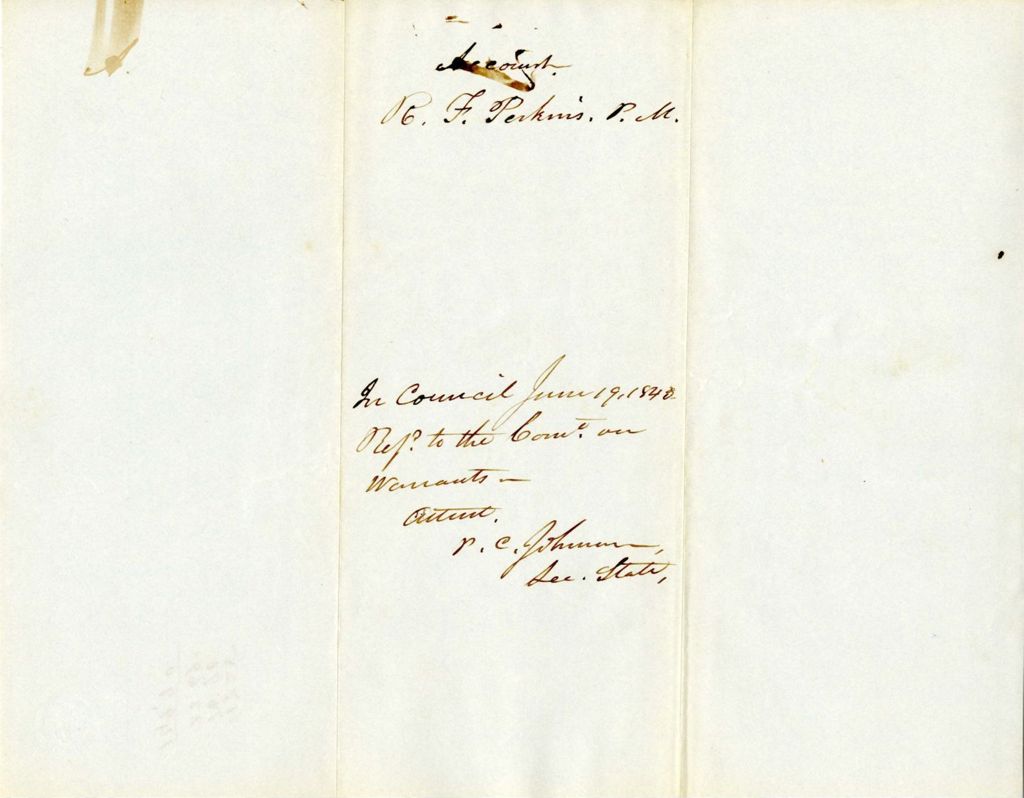 A.
Account
R. F. Perkins. P. M.
In Council June 19, 1840
Refd. to the Comt. on
Warrants —
Attest.
P. C. Johnson,
Sec. State,